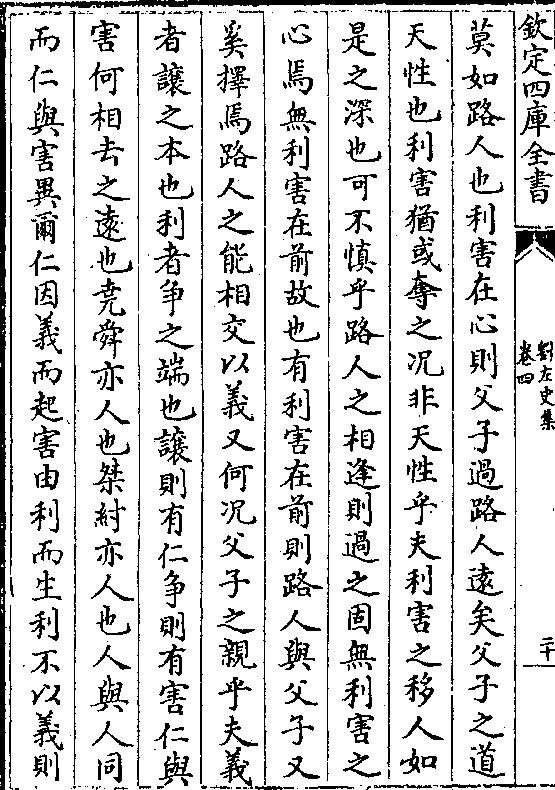 欽定四庫全書
劉左史集
卷四
二十
莫如路人也利害在心則父子過路人遠矣父子之道
天性也利害猶或奪之况非天性乎夫利害之移人如
是之深也可不慎乎路人之相逢則過之固無利害之
心焉無利害在前故也有利害在前則路人與父子又
奚擇焉路人之能相交以義又何况父子之親乎夫義
者譲之本也利者争之端也譲則有仁争則有害仁與
害何相去之遠也堯舜亦人也桀紂亦人也人與人同
而仁與害異爾仁因義而起害由利而生利不以義則